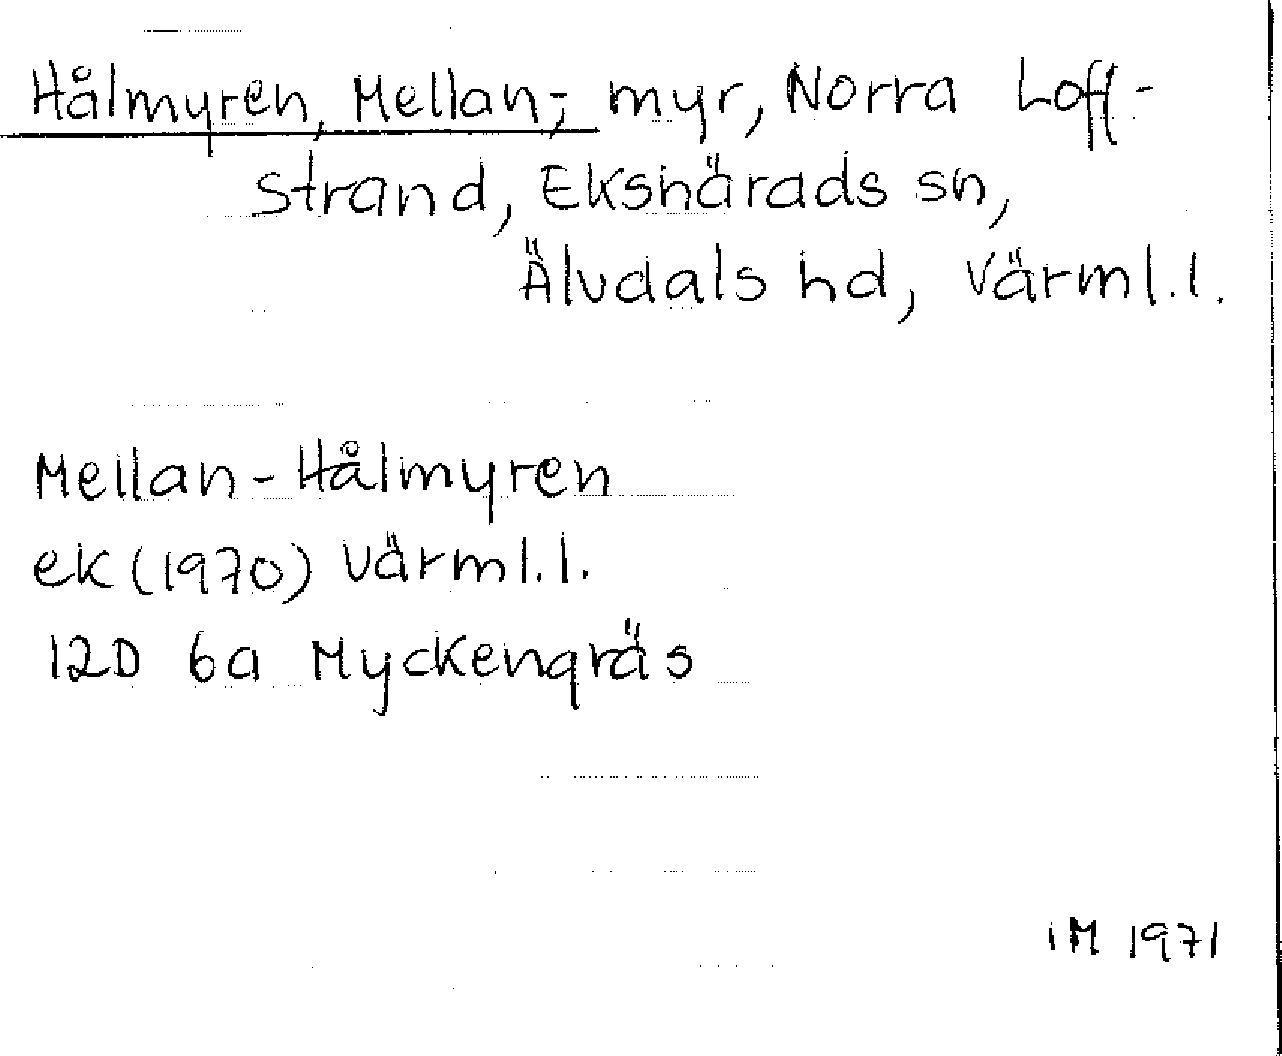 Hålmyren, Mellan-, myr, Norra Loff-
strand, Ekshärads sn,
Älvdals hd, Värml.l.
Mellan-Hålmyren
ek (1970) Värml.l.
12D 6a Myckengräs
IM 1971